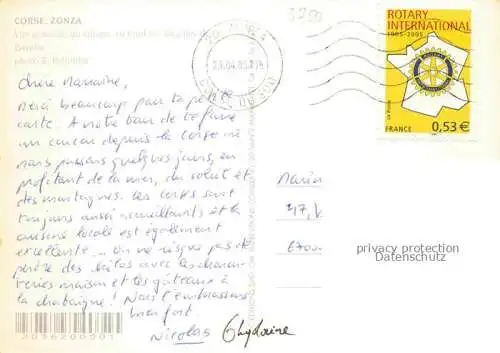 CORSE. ZONZA
Vue générale du village, au fond les aiguilles de
Bavella
photo
Chère Marraine,
Merci beaucoup pour ta petite
carte. A notre tour de te faire
un coucou depuis la Corse où
nous passons quelques jours, en
profitant de la mer, du soleil et
des montagnes. Les corses sont
toujours aussi accueillants et la
cuisine locale est également
excellente ... On ne risque pas de
perdre des kilos avec les charcu-
teries maison et les gâteaux à
la chataigne ! Nous t'embrassons
bien fort.
Nicolas Ghyslaine
2036200901
CORSE DU SUD
ROTARY
INTERNATIONAL
1905-2005
LA POSTE
FRANCE 0,53 €
47,
privacy protection
Datenschutz